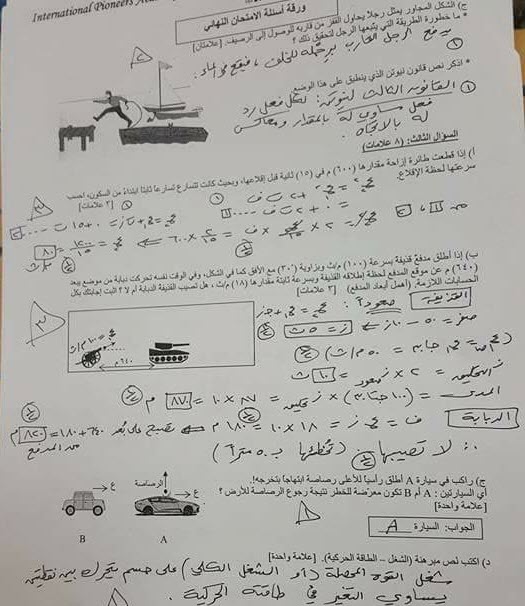 International Pioneers
ورقة أسئلة الامتحان النهائي
ج) الشكل المجاور يمثل رجلاً يحاول القفز من قاربه للوصول إلى الرصيف. [علامتان]
* ما خطورة الطريقة التي يتبعها الرجل لتحقيق ذلك؟
يدفع الرجل القارب برجله للخلف ، فيقع في الماء.
* اذكر نص قانون نيوتن الذي ينطبق على هذا الوضع
القانون الثالث لنيوتن: لكل فعل رد
فعل مساوٍ له بالمقدار ومعاكس
له بالاتجاه.
السؤال الثالث: (٨ علامات)
أ) إذا قطعت طائرة إزاحة مقدارها (٦٠٠) م في (١٥) ثانية قبل إقلاعها، وبحيث كانت تتسارع تسارعاً ثابتاً ابتداءً من السكون، احسب
سرعتها لحظة الإقلاع. [٣ علامات]
ب) إذا أطلق مدفع قذيفة بسرعة (١٠٠) م/ث وبزاوية (٣٠°) مع الأفق كما في الشكل، وفي الوقت نفسه تحركت دبابة من موضع يبعد
(٦٤٠) م عن موقع المدفع لحظة إطلاقه القذيفة وبسرعة ثابتة مقدارها (١٨) م/ث ، هل تصيب القذيفة الدبابة أم لا ؟ اثبت إجابتك بكل
الحسابات اللازمة. (أهمل أبعاد المدفع) [٣ علامات]
القذيفة صعوداً :
صفر = ٥٠ - ١٠ز ← ز = ٥ ث
ز التحليق = ٢ × ز صعود = ١٠ ث
المدى = (١٠٠ جتا٣٠) × ز تحليق = ٨٧ × ١٠ = ٨٧٠ م
الدبابة ف = ع ز = ١٨ × ١٠ = ١٨٠ م ← تصبح على بُعد ٦٤٠ + ١٨٠ = ٨٢٠ م
من المدفع
∴ لا تصيبها (تخطئها بـ ٥٠ متراً)
ج) راكب في سيارة A أطلق رأسياً للأعلى رصاصة ابتهاجاً بتخرجه!
أي السيارتين : A أم B تكون معرّضة للخطر نتيجة رجوع الرصاصة للأرض؟
[علامة واحدة]
الجواب: السيارة A
الرصاصة
ع
ع
B
A
د) اكتب نص مبرهنة (الشغل – الطاقة الحركية). [علامة واحدة]
شغل القوة المحصلة (أو الشغل الكلي) على جسم يتحرك بين نقطتين
يساوي التغير في طاقته الحركية.